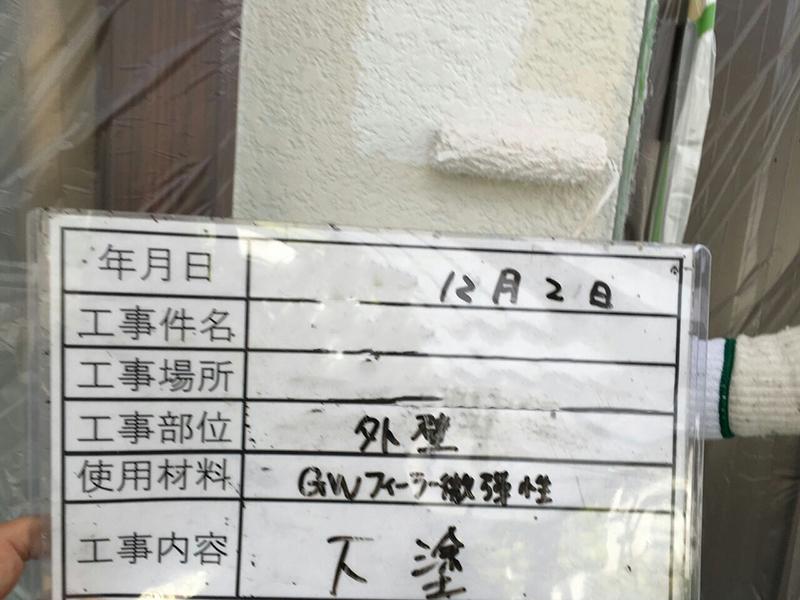 年月日 12月2日
工事件名
工事場所
工事部位 外壁
使用材料 GWフィーラー微弾性
工事内容 下塗